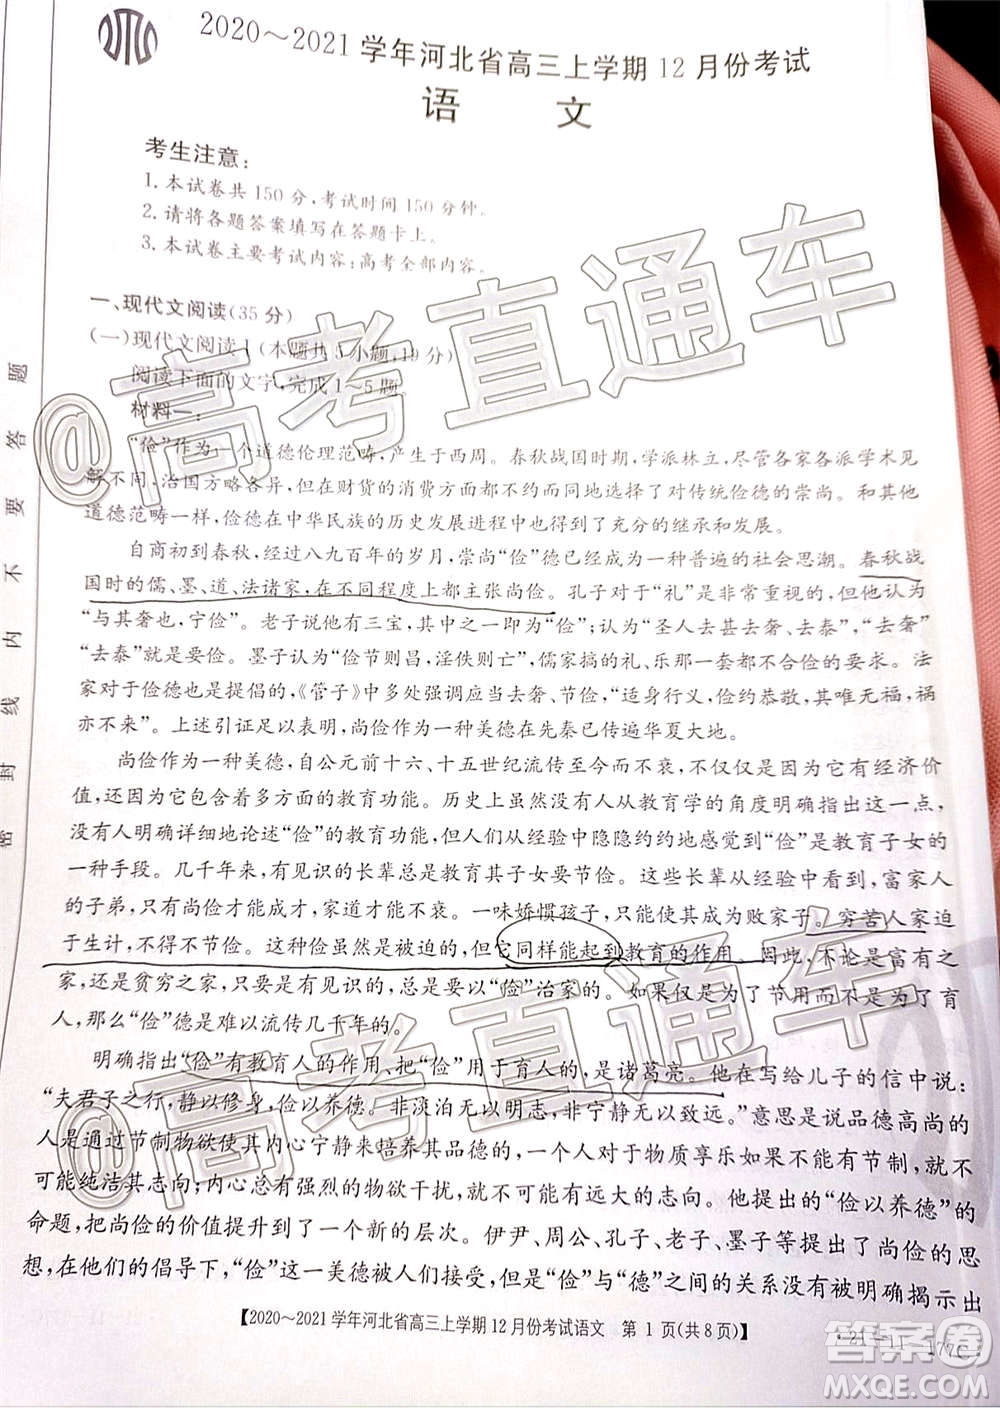 2020～2021学年河北省高三上学期12月份考试
语 文
考生注意：
1. 本试卷共150分，考试时间150分钟。
2. 请将各题答案填写在答题卡上。
3. 本试卷主要考试内容：高考全部内容。
一、现代文阅读（35分）
（一）现代文阅读Ⅰ（本题共5小题，19分）
阅读下面的文字，完成1～5题。
材料一：
“俭”作为一个道德伦理范畴，产生于西周。春秋战国时期，学派林立，尽管各家各派学术见
解不同，治国方略各异，但对财货的消费方面都不约而同地选择了对传统俭德的崇尚。和其他
道德范畴一样，俭德在中华民族的历史发展进程中也得到了充分的继承和发扬。
自商初到春秋，经过八九百年的岁月，崇尚“俭”德已经成为一种普遍的社会思潮。春秋战
国时的儒、墨、道、法诸家，在不同程度上都主张尚俭。孔子对于“礼”是非常重视的，但还认为
“与其奢也，宁俭”。老子说他有三宝，其中之一即为“俭”；认为“圣人去甚去奢、去泰”，“去奢”
“去泰”就是俭。墨子认为“俭节则昌，淫佚则亡”，儒家搞的礼、乐两项都是太奢侈浪费了。法
家对于俭德也是提倡的，《管子》中多处强调应去奢、节俭，“适身行义，俭约恭敬，其唯无福，祸
亦不来”。上述引证足以表明，尚俭作为一种美德在先秦已传遍华夏大地。
尚俭作为一种美德，自公元前十六、十五世纪流传至今而不衰，不仅仅是因为它有经济价
值，还因为它包含着多方面的教育功能。历史上虽然没有人从教育学的角度明确指出这一点，
没有人明确详细地论述“俭”的教育功能，但人们从经验中隐隐约约地感觉到“俭”是教育子女的
一种手段。几千年来，有见识的长辈总是教育其子女要节俭。这些长辈从经验中看到，富家人
的子弟，只有尚俭才能成才，家道才能不衰。一味娇惯孩子，只能使其成为败家子。穷苦人家迫
于生计，不得不节俭。这种俭虽然是被迫的，但它同样能起到教育的作用。因此，不论是富有之
家，还是贫穷之家，只要是有见识的，总是要以“俭”治家的。如果仅是为了节用而不是为了育
人，那么“俭”德是难以流传几千年的。
明确指出“俭”有教育人的作用、把“俭”用于育人的，是诸葛亮。他在写给儿子的信中说：
“夫君子之行，静以修身，俭以养德。非淡泊无以明志，非宁静无以致远。”意思是说品德高尚的
人是通过节制物欲使其内心宁静来培养其品德的；一个人对于物质享乐如果不能有节制，就不
可能纯洁其志向；内心总有强烈的物欲干扰，就不可能有远大的志向。他提出的“俭以养德”的
命题，把尚俭的价值提升到了一个新的层次。伊尹、周公、孔子、老子、墨子等提出了尚俭的思
想，在他们的倡导下，“俭”这一美德被人们接受，但是“俭”与“德”之间的关系没有明确揭示出
【2020～2021学年河北省高三上学期12月份考试语文 第1页（共8页）】
密 封 线 内 不 要 答 题
@高考直通车
@高考直通车
答案圈
MXQE.COM